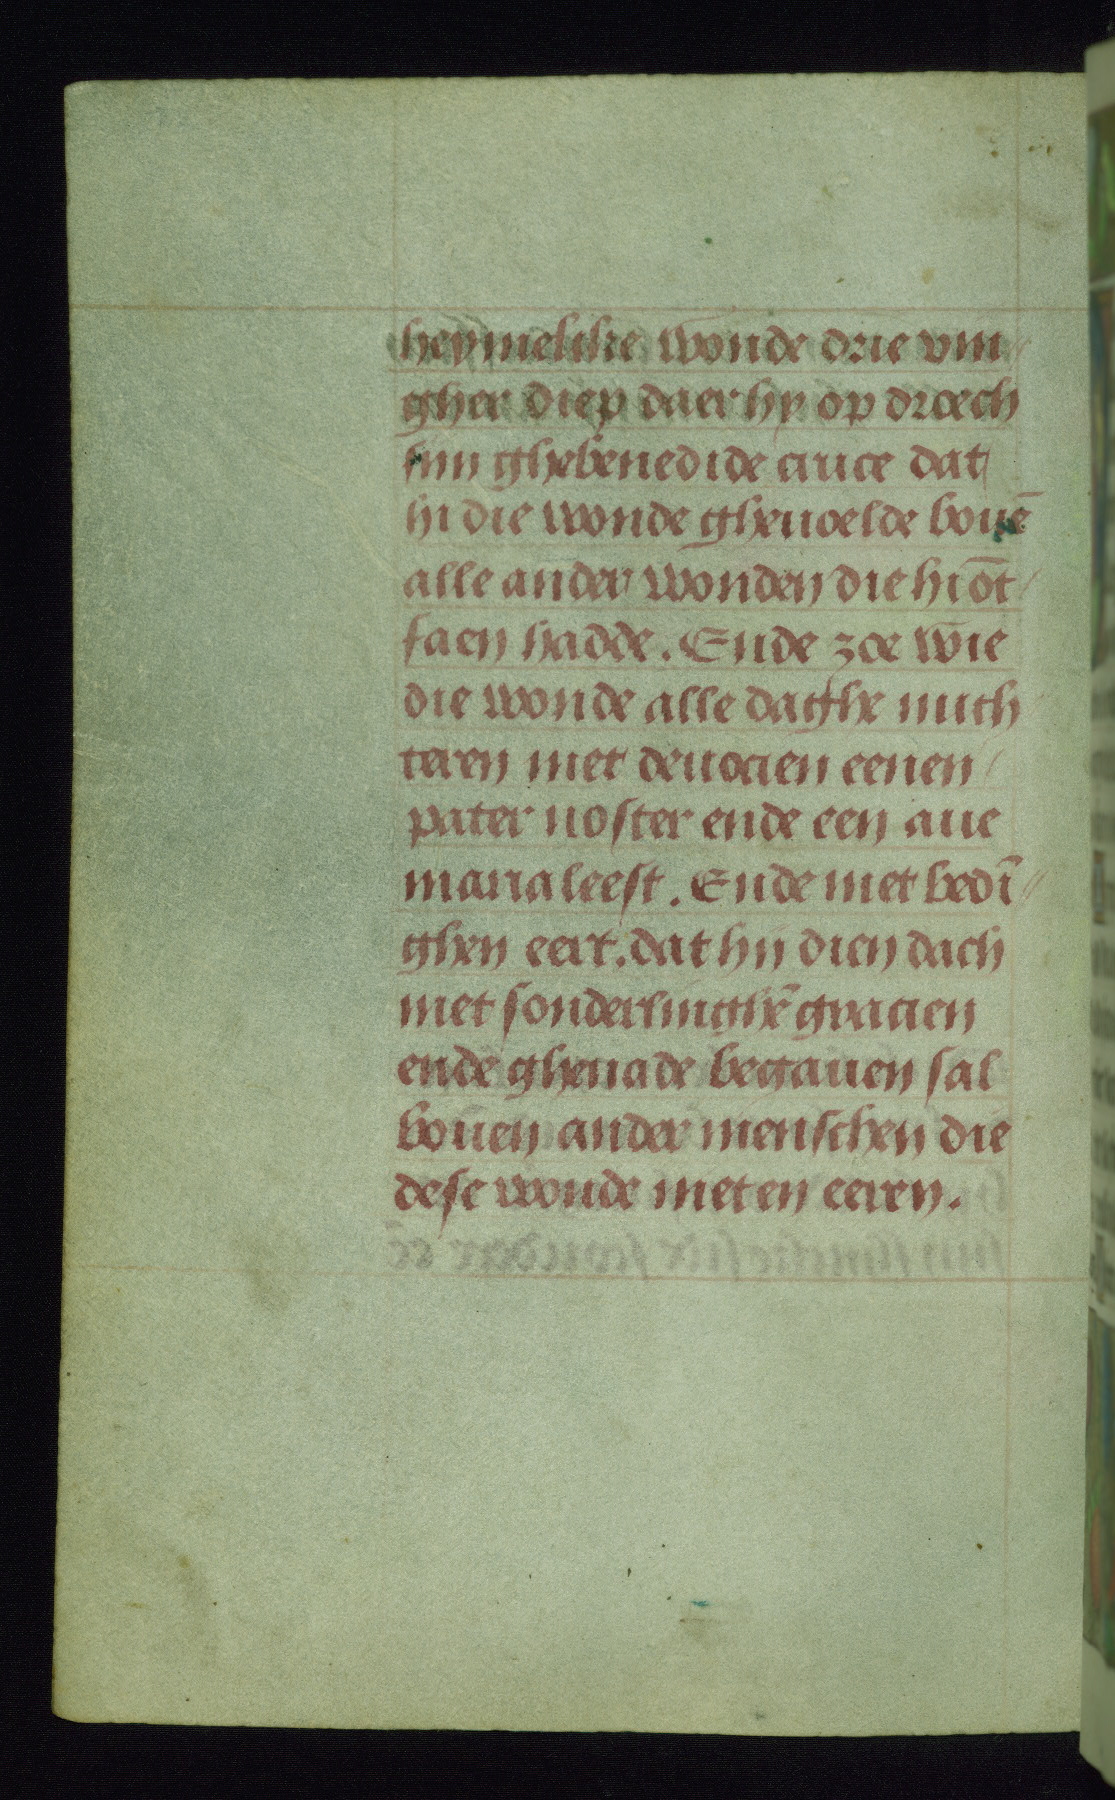 heymelike wonde drie vin
gher diep daer hy op droech
siin ghebenedide cruce dat
hi die wonde gheuoelde bouē
alle ander wonden die hi ōt
faen hadde. Ende zoe wie
die wonde alle daghe nuch
teren met deuocien eenen
pater noster ende een aue
maria leest. Ende met bedī
ghen eert. dat hij dien dach
met sonderlinghē gracien
ende ghenade begauen sal
bouen ander menschen die
dese wonde niet en eeren.